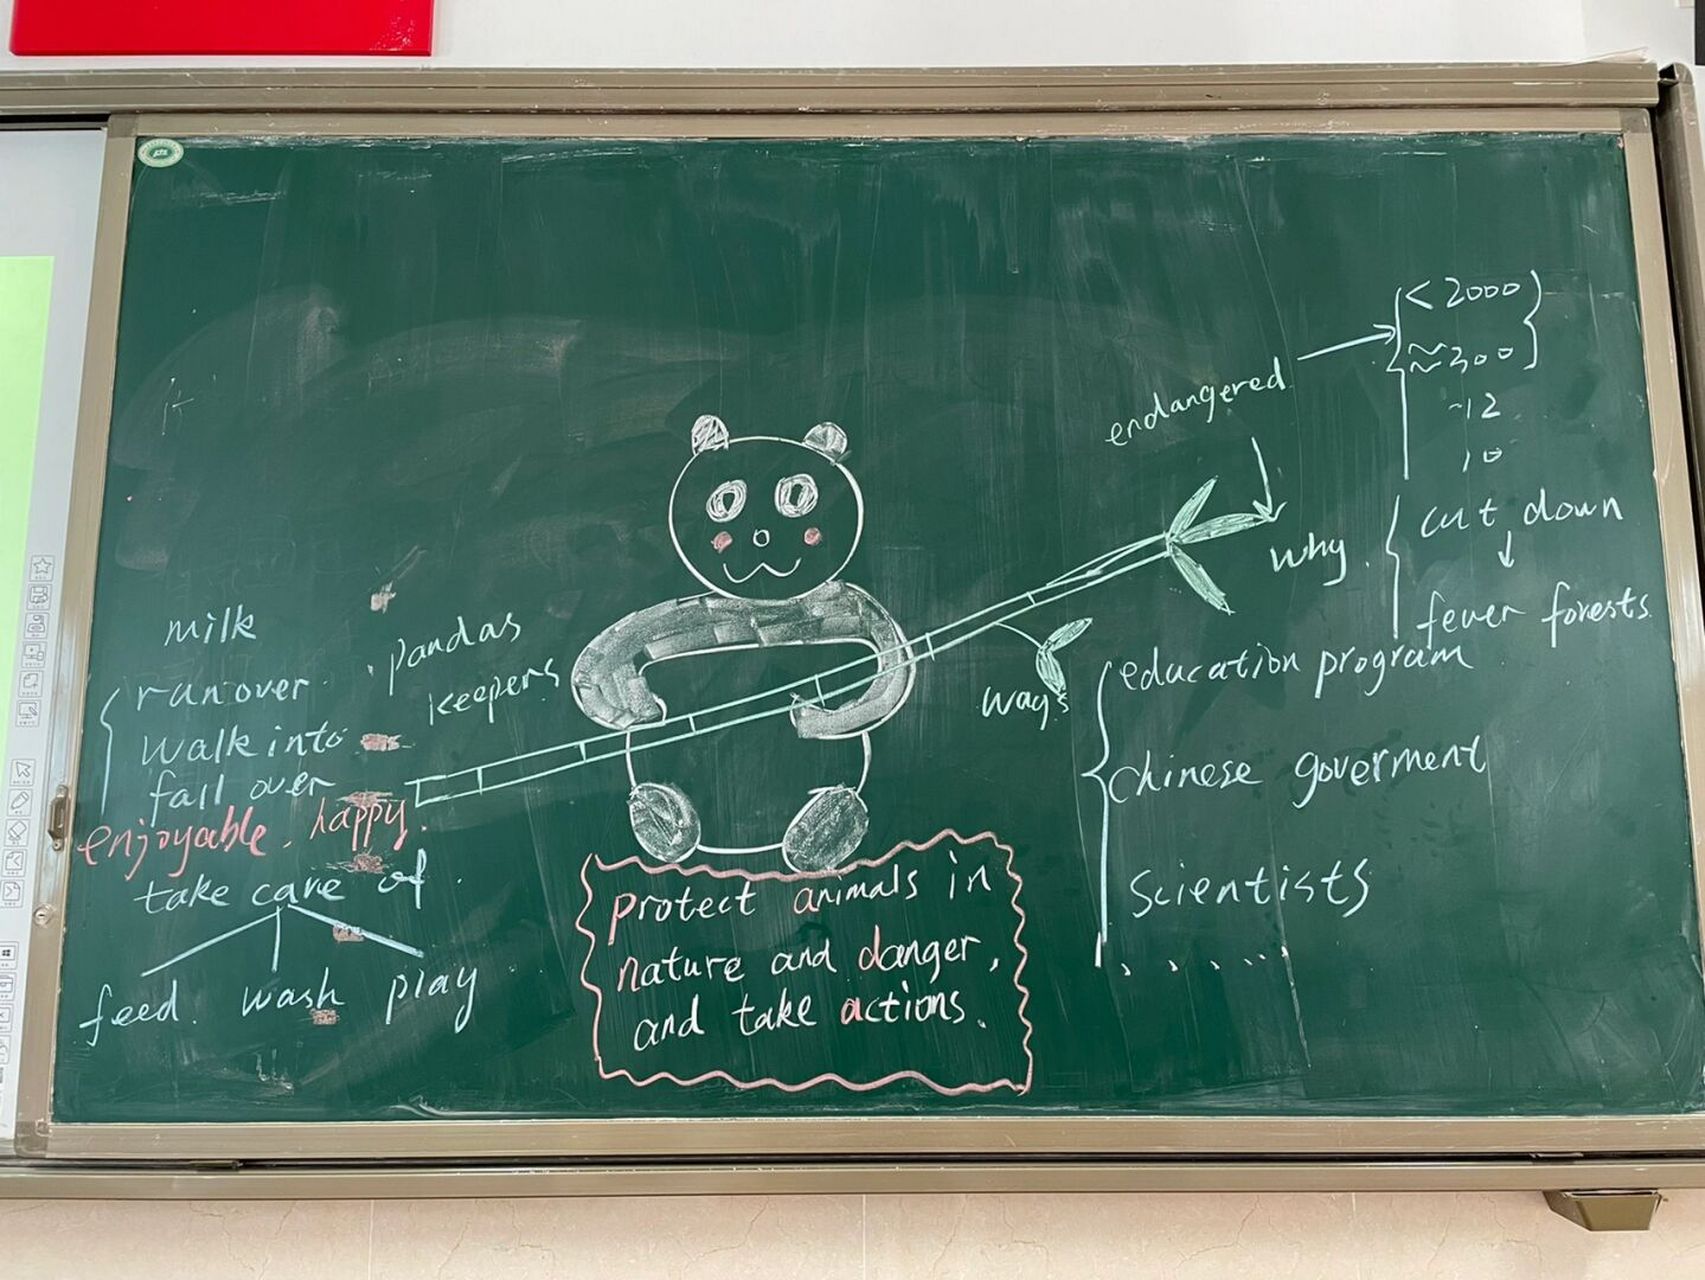 milk
pandas
keepers
run over
walk into
fall over
enjoyable. happy.
take care of
feed. wash play
protect animals in
nature and danger,
and take actions.
endangered
< 2000
≈300
~12
10
why.
cut down
fewer forests
ways
education program
Chinese goverment
Scientists